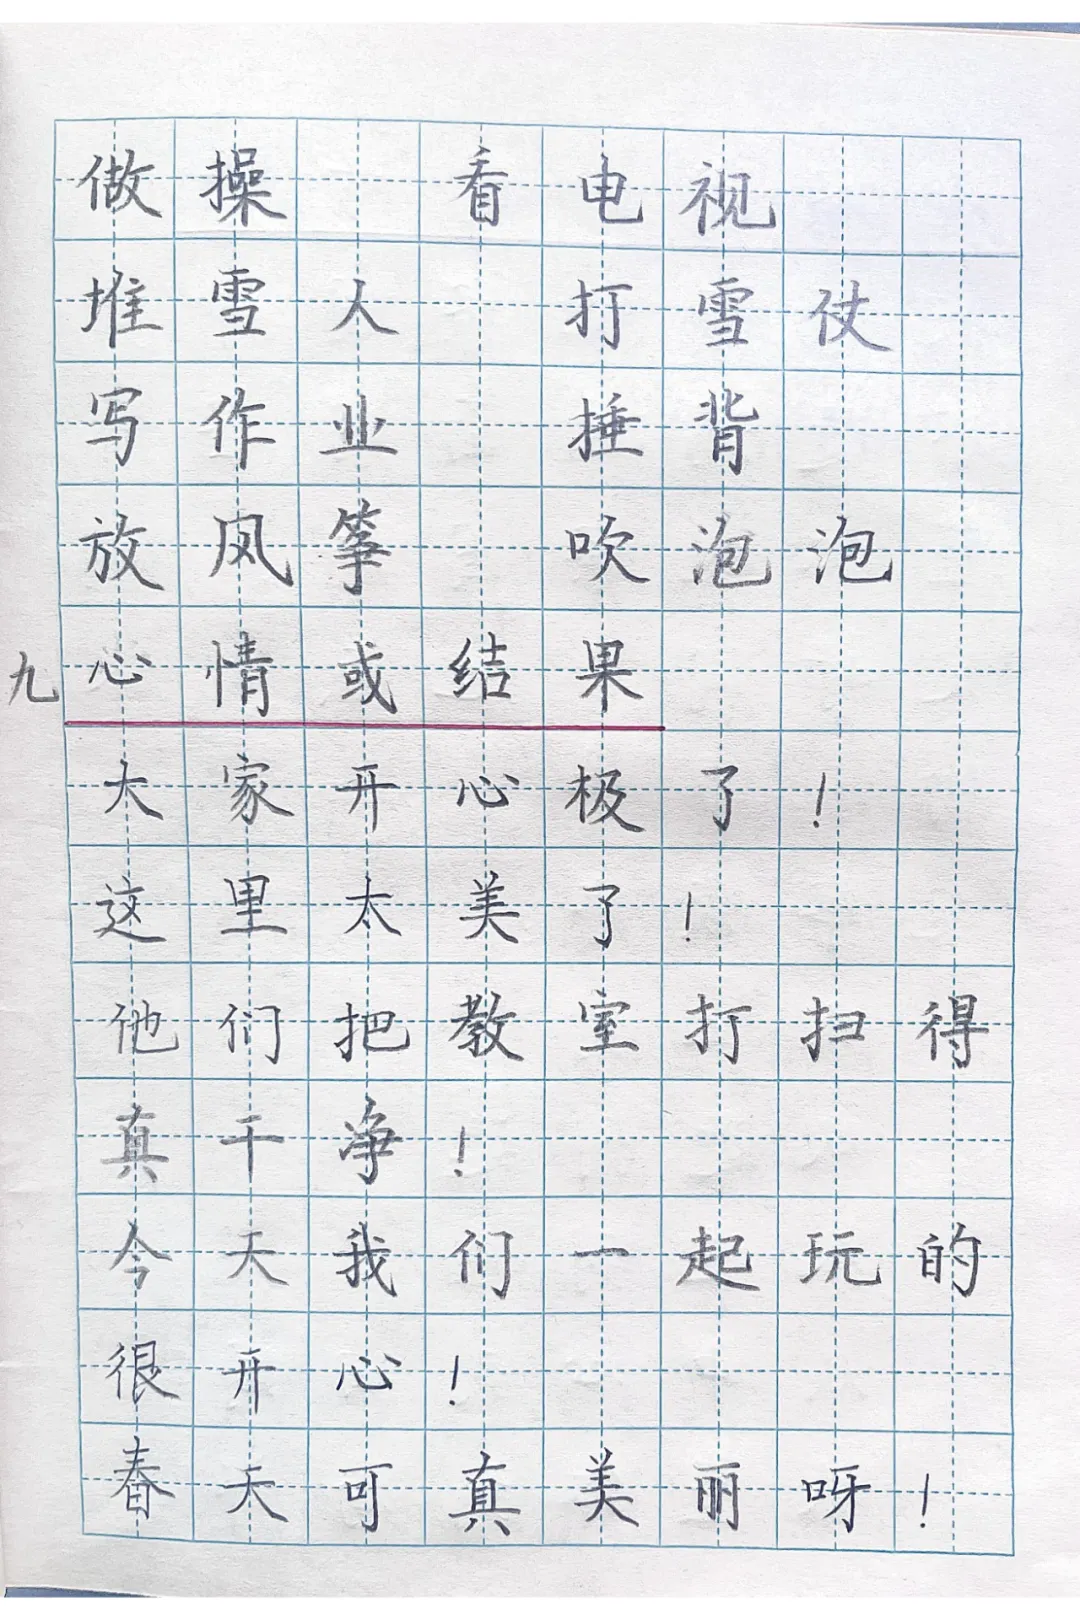 做操 看电视
堆雪人 打雪仗
写作业 捶背
放风筝 吹泡泡
九 心情或结果
大家开心极了！
这里太美了！
他们把教室打扫得
真干净！
今天我们一起玩的
很开心！
春天可真美丽呀！